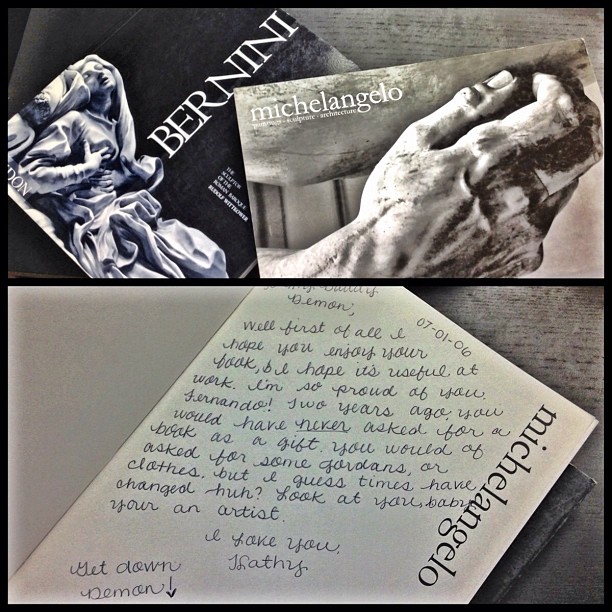 BERNINI
THE
SCULPTOR
OF THE
ROMAN BAROQUE
RUDOLF WITTKOWER
michelangelo
paintings · sculpture · architecture
Demon,
07-01-06
Well first of all I
hope you enjoy your
book, & I hope it's useful at
work. I'm so proud of you,
Fernando! Two years ago you
would have never asked for a
book as a gift. You would of
asked for some Jordans, or
clothes. but I guess times have
changed huh? Look at you, baby
your an artist.
I Love you,
Kathy
Get down
Demon ↓
michelangelo